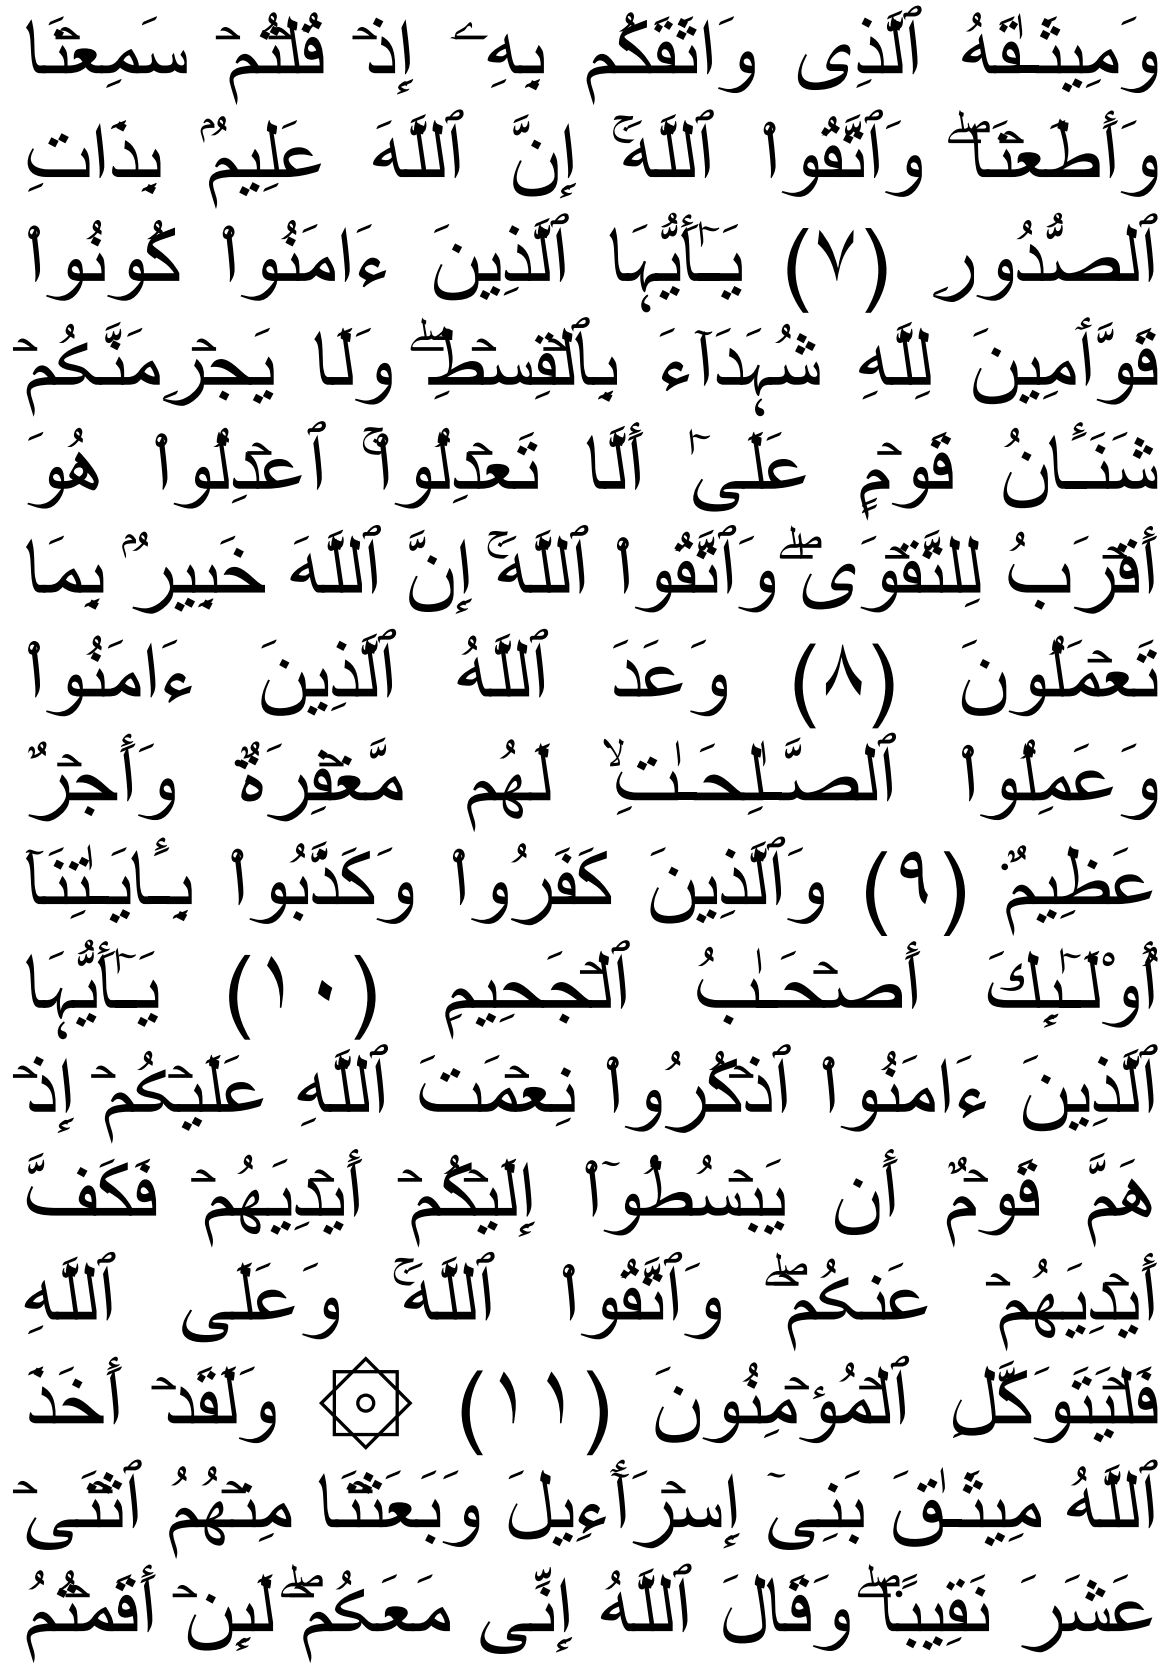 وَمِيثَـٰقَهُ ٱلَّذِى وَاثَقَكُم بِهِۦٓ إِذۡ قُلۡتُمۡ سَمِعۡنَا
وَأَطَعۡنَاۖ وَٱتَّقُواْ ٱللَّهَۚ إِنَّ ٱللَّهَ عَلِيمُۢ بِذَاتِ
ٱلصُّدُورِ (٧) يَـٰٓأَيُّہَا ٱلَّذِينَ ءَامَنُواْ كُونُواْ
قَوَّٲمِينَ لِلَّهِ شُہَدَآءَ بِٱلۡقِسۡطِۖ وَلَا يَجۡرِمَنَّڪُمۡ
شَنَـَٔانُ قَوۡمٍ عَلَىٰٓ أَلَّا تَعۡدِلُواْۚ ٱعۡدِلُواْ هُوَ
أَقۡرَبُ لِلتَّقۡوَىٰۖ وَٱتَّقُواْ ٱللَّهَۚ إِنَّ ٱللَّهَ خَبِيرُۢ بِمَا
تَعۡمَلُونَ (٨) وَعَدَ ٱللَّهُ ٱلَّذِينَ ءَامَنُواْ
وَعَمِلُواْ ٱلصَّـٰلِحَـٰتِۙ لَهُم مَّغۡفِرَةٌ وَأَجۡرٌ
عَظِيمٌ (٩) وَٱلَّذِينَ كَفَرُواْ وَكَذَّبُواْ بِـَٔايَـٰتِنَآ
أُوْلَـٰٓٮِٕكَ أَصۡحَـٰبُ ٱلۡجَحِيمِ (١٠) يَـٰٓأَيُّہَا
ٱلَّذِينَ ءَامَنُواْ ٱذۡكُرُواْ نِعۡمَتَ ٱللَّهِ عَلَيۡڪُمۡ إِذۡ
هَمَّ قَوۡمٌ أَن يَبۡسُطُوٓاْ إِلَيۡكُمۡ أَيۡدِيَهُمۡ فَكَفَّ
أَيۡدِيَهُمۡ عَنڪُمۡۖ وَٱتَّقُواْ ٱللَّهَۚ وَعَلَى ٱللَّهِ
فَلۡيَتَوَكَّلِ ٱلۡمُؤۡمِنُونَ (١١) ۞ وَلَقَدۡ أَخَذَ
ٱللَّهُ مِيثَـٰقَ بَنِىٓ إِسۡرَٲٓءِيلَ وَبَعَثۡنَا مِنۡهُمُ ٱثۡنَىۡ
عَشَرَ نَقِيبً۬اۖ وَقَالَ ٱللَّهُ إِنِّى مَعَڪُمۡۖ لَٮِٕنۡ أَقَمۡتُمُ